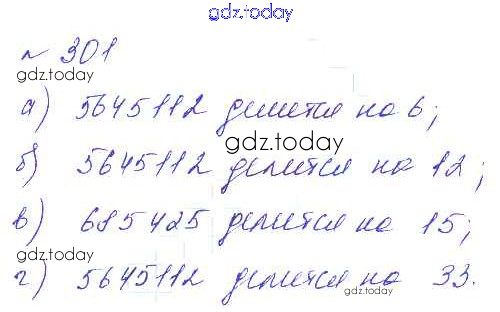 gdz.today
№ 301
gdz.today
а) 5645112 делится на 6;
gdz.today
б) 5645112 делится на 12;
в) 685425 делится на 15;
gdz.today
г) 5645112 делится на 33.
gdz.today
gdz.today